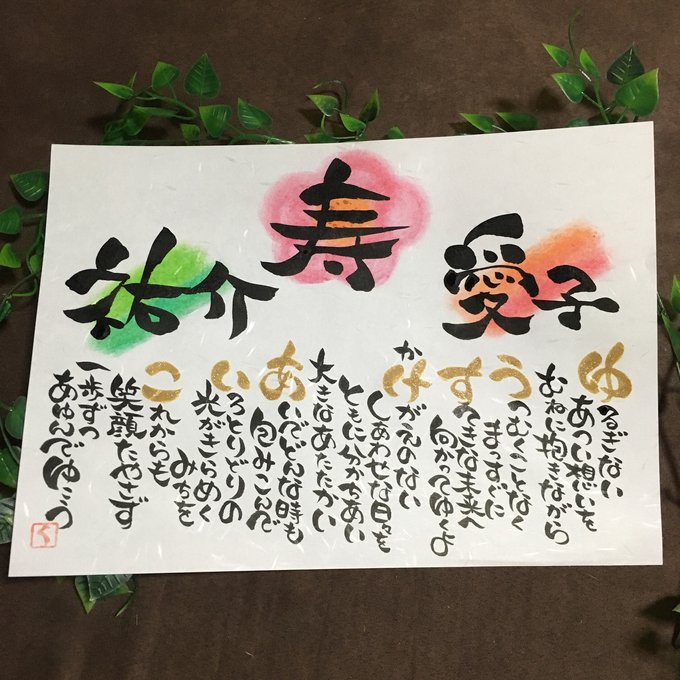 寿
愛子
祐介
ゆるぎない
あつい想いを
むねに抱きながら
うつむくことなく
まっすぐに
すてきな未来へ
向かってゆくよ
かけがえのない
しあわせな日々を
ともに分かちあい
大きなあたたかい
あいでどんな時も
包みこんで
いろとりどりの
光がきらめく
みちを
これからも
笑顔たやさず
一歩ずつ
あゆんでゆこう